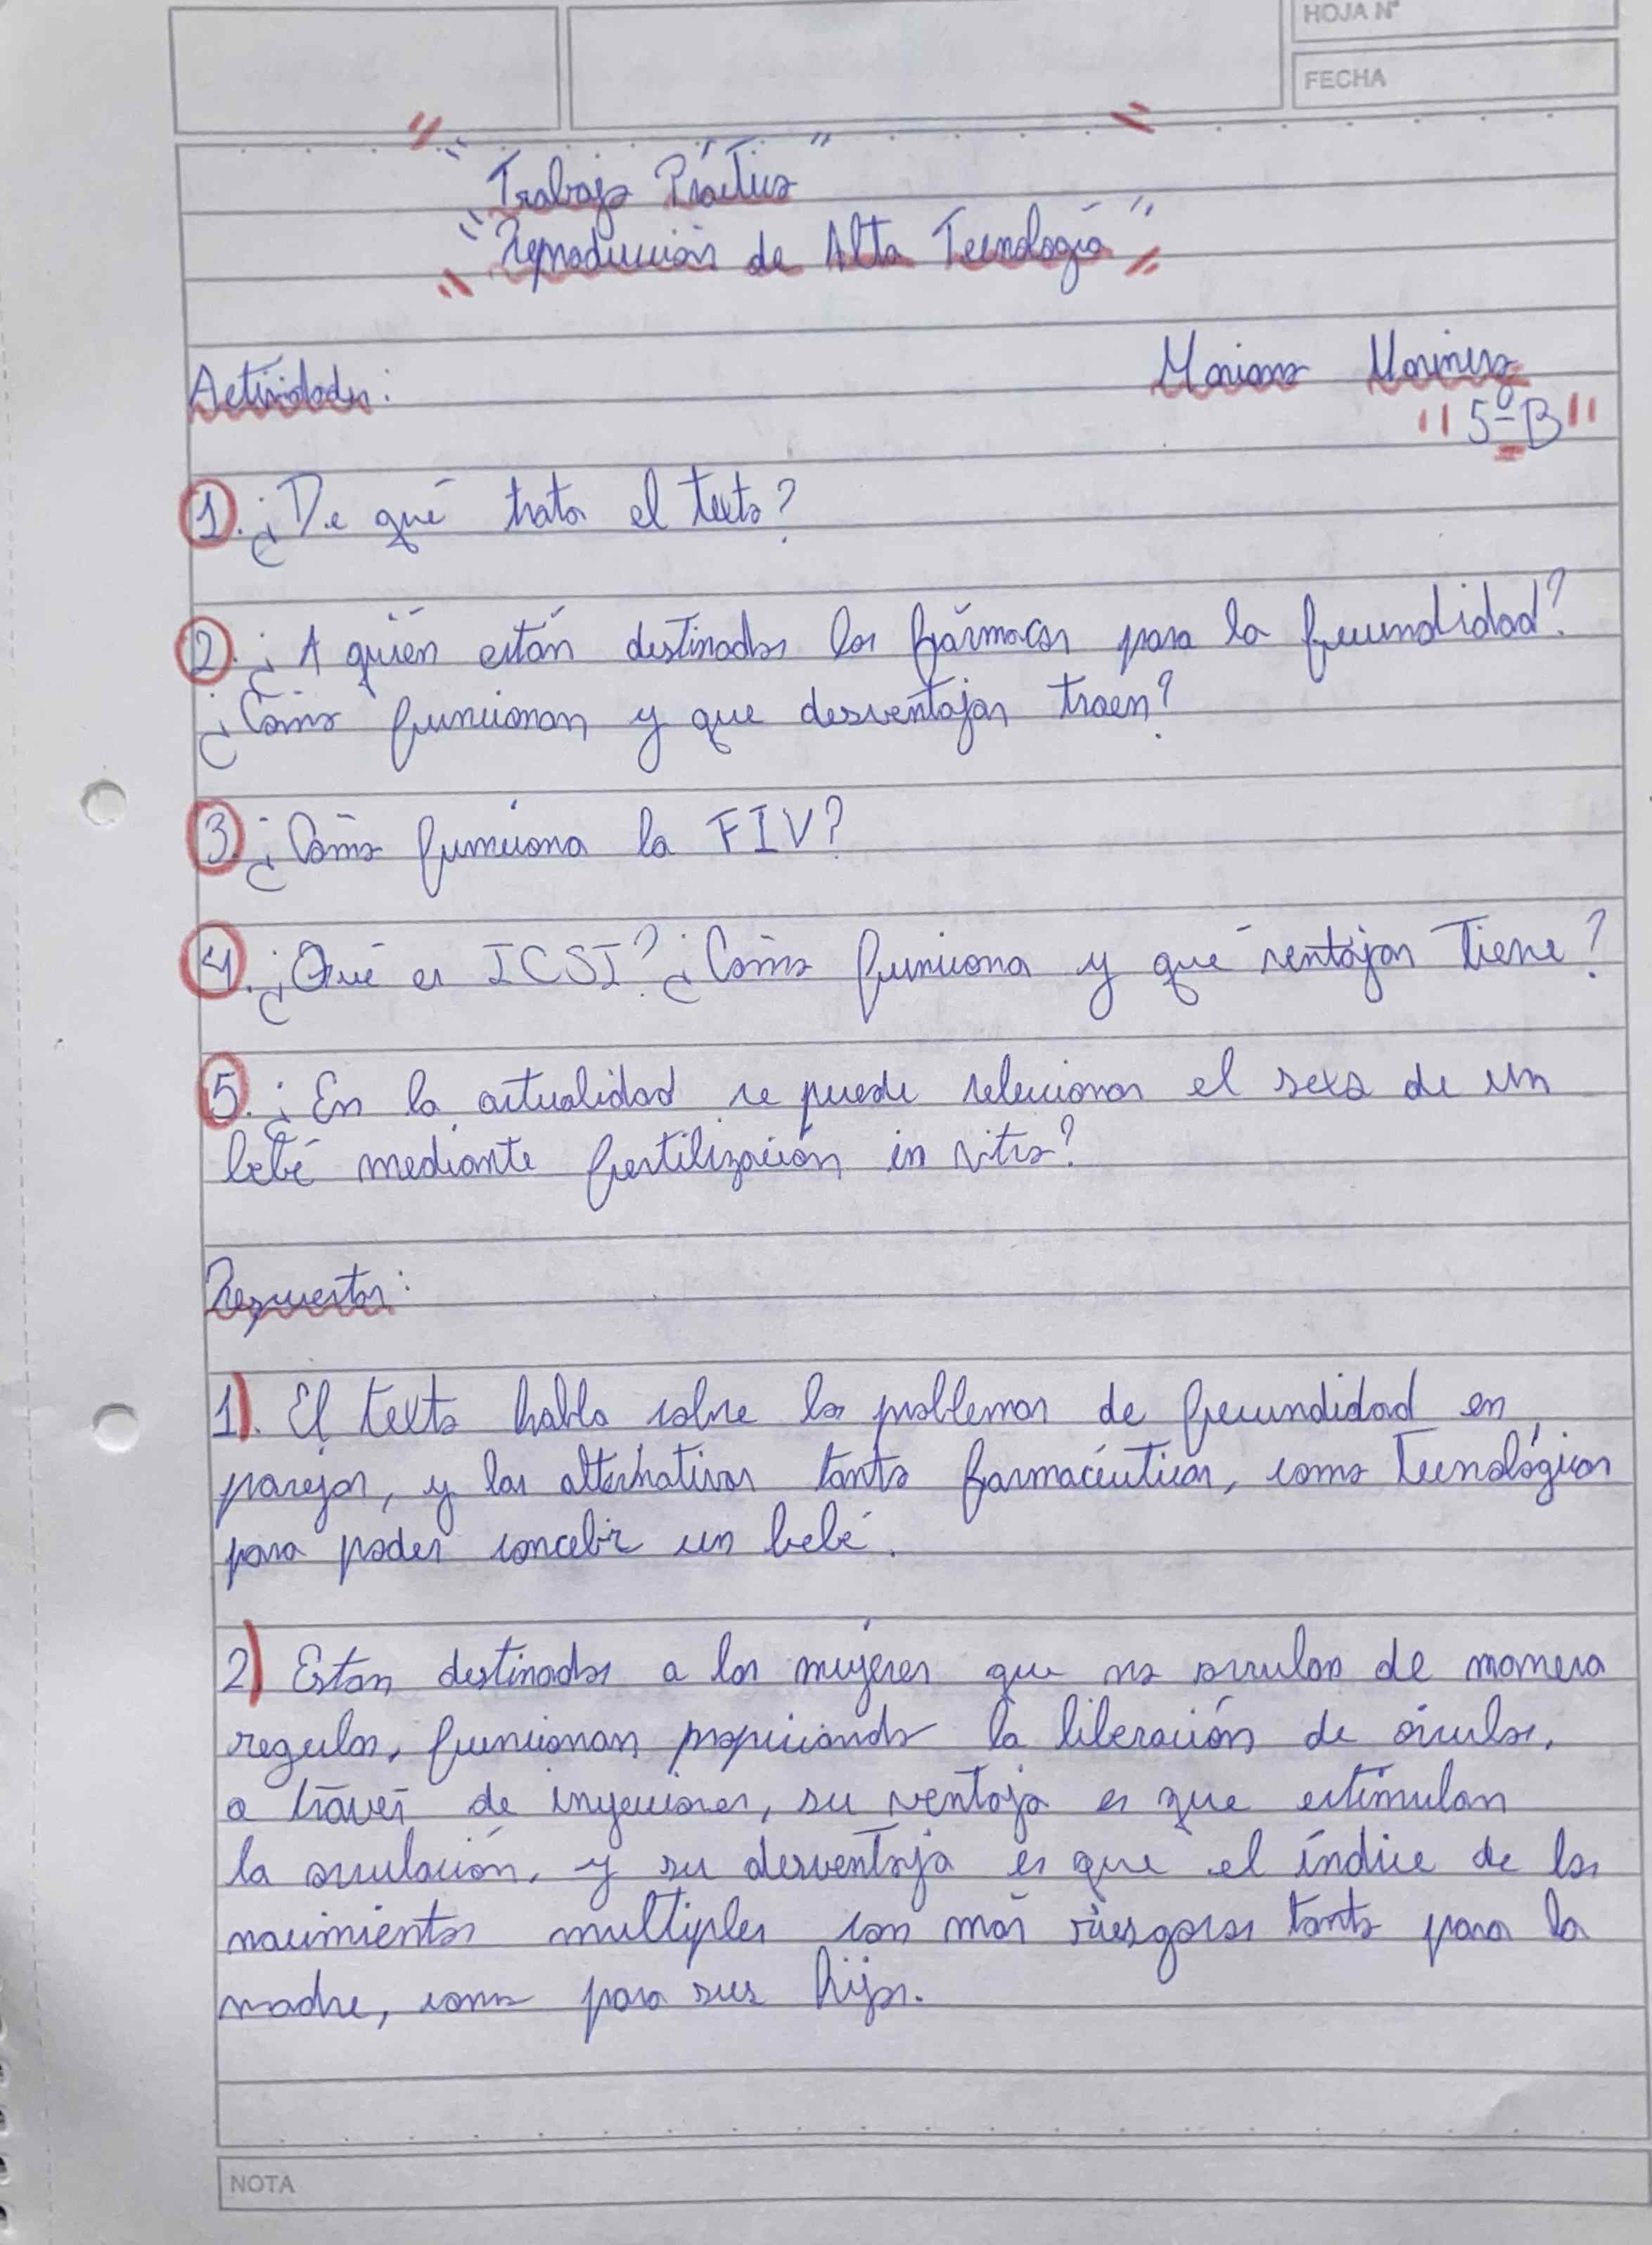 HOJA Nº
FECHA
"Trabajo Práctico"
"Reproducción de Alta Tecnología"
Actividades:
Mariana Marinero
"5º B"
1. ¿De qué trata el texto?
2. ¿A quién están destinados los fármacos para la fecundidad?
¿Cómo funcionan y que desventajas traen?
3. ¿Cómo funciona la FIV?
4. ¿Qué es ICSI? ¿Cómo funciona y qué ventajas tiene?
5. ¿En la actualidad se puede seleccionar el sexo de un
bebé mediante fertilización in vitro?
Respuestas:
1). El texto habla sobre los problemas de fecundidad en
parejas, y las alternativas tanto farmacéuticas, como tecnológicas
para poder concebir un bebé.
2) Estan destinados a las mujeres que no ovulan de manera
regular, funcionan propiciando la liberación de óvulos,
a través de inyecciones, su ventaja es que estimulan
la ovulación, y su desventaja es que el índice de los
nacimientos multiples son más riesgosos tanto para la
madre, como para sus hijos.
NOTA